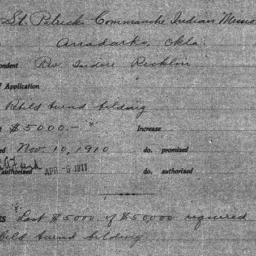 St. Patrick Commanche Indian Memo
Anadarko, Okla.
ondent Rev. Isidore Ricklin
f Application
Rebild burnd bilding
$5000.— " Increase
ed Nov. 10, 1910 do. promised
authorised APR - 5 1911 do. authorised
KS "Last $5000 of $50,000 required
Rebild burnd bilding